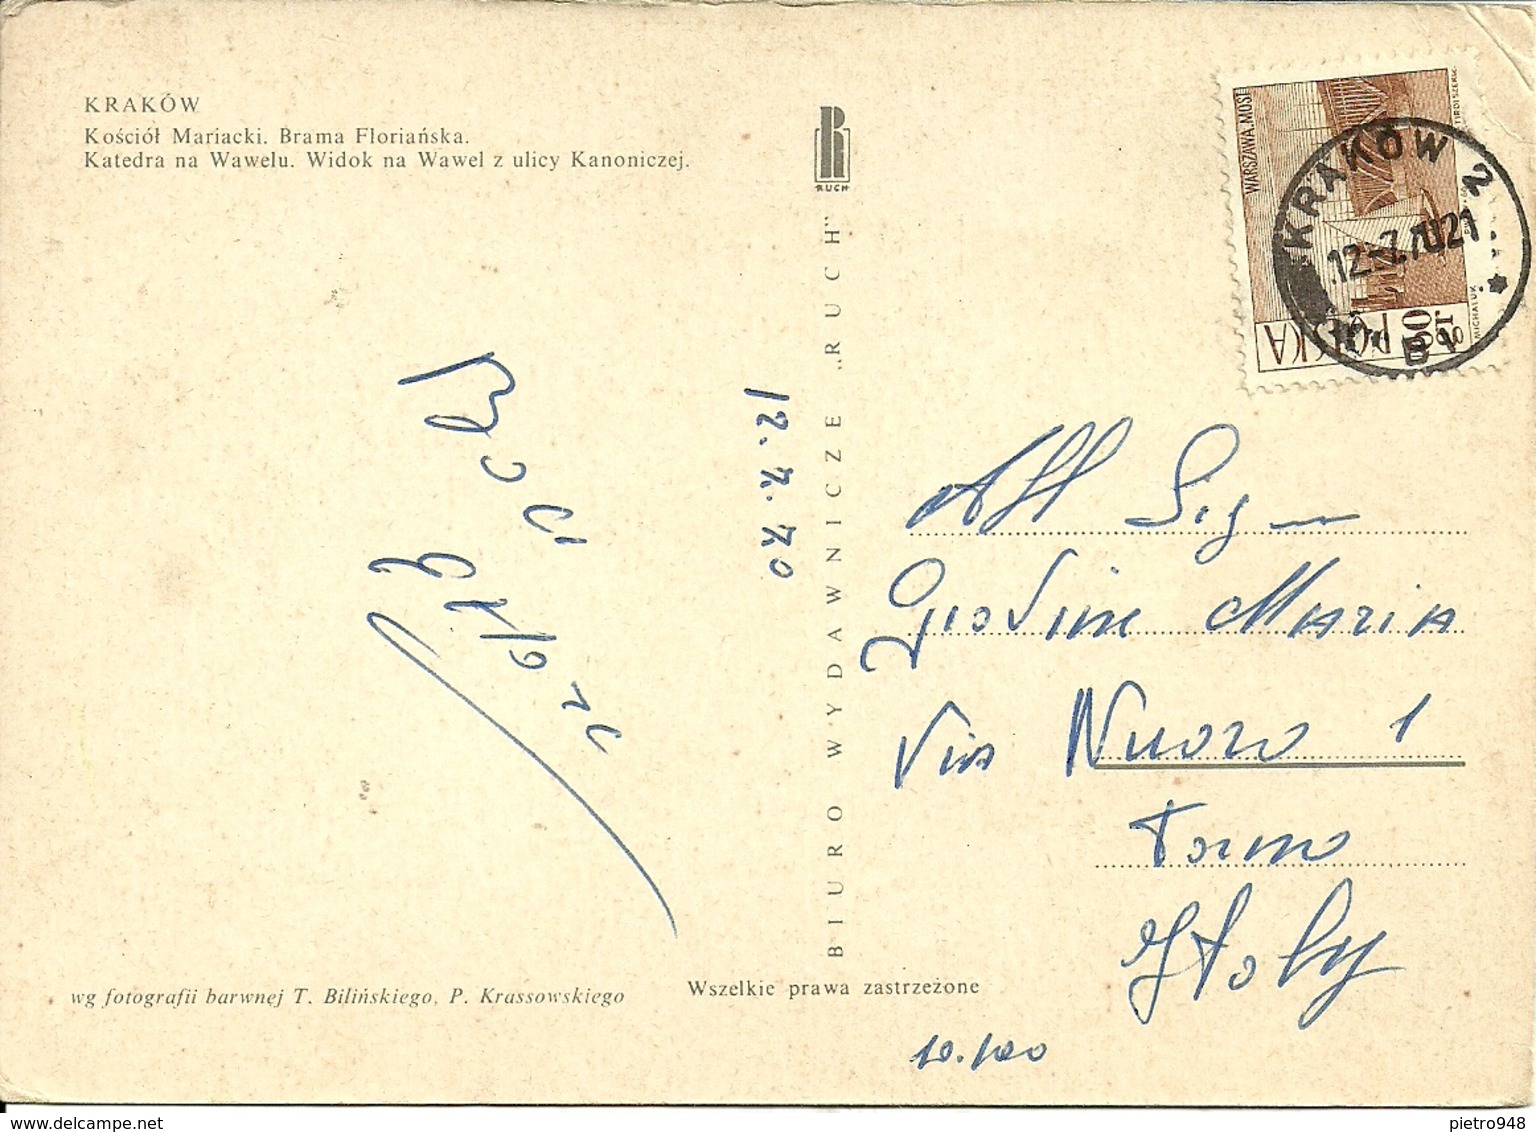 KRAKÓW
Kościół Mariacki. Brama Floriańska.
Katedra na Wawelu. Widok na Wawel z ulicy Kanoniczej.
RUCH
BIURO WYDAWNICZE „RUCH”
WARSZAWA. MOST
POLSKA
60 GR
MICHALUK
KRAKÓW 2
12.-7.70 21
12.7.70
All Sig
Giovine Maria
Via Nuoro 1
Torino
Italy
10.100
wg fotografii barwnej T. Bilińskiego, P. Krassowskiego
Wszelkie prawa zastrzeżone
delcampe.net
pietro948